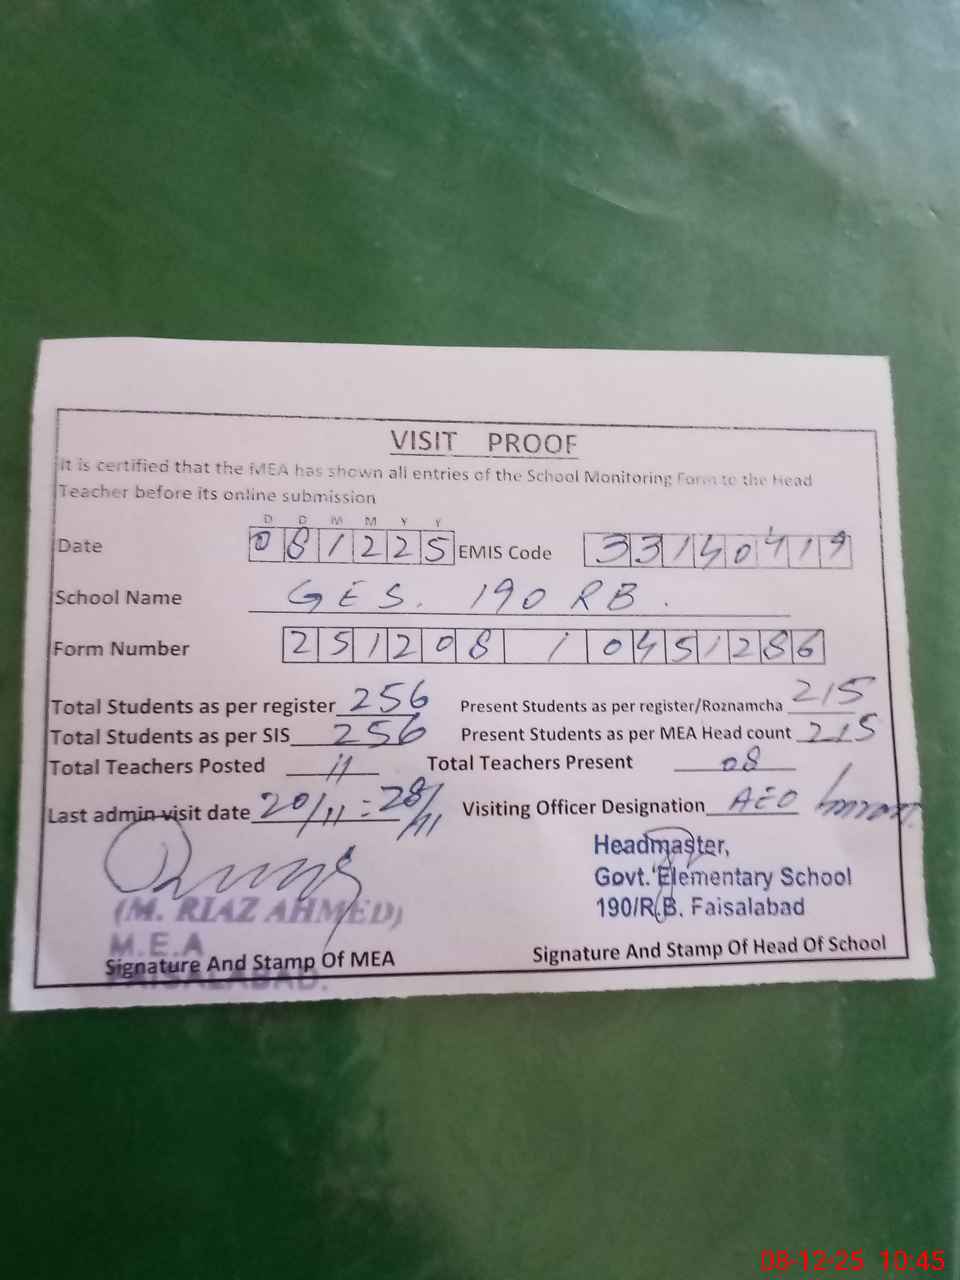 VISIT PROOF
It is certified that the MEA has shown all entries of the School Monitoring Form to the Head
Teacher before its online submission
D D M M Y Y
Date 081225 EMIS Code 33140419
School Name GES. 190 RB.
Form Number 251208 1 0451286
Total Students as per register 256 Present Students as per register/Roznamcha 215
Total Students as per SIS 256 Present Students as per MEA Head count 215
Total Teachers Posted 11 Total Teachers Present 08
Last admin visit date 20/11 = 28/11 Visiting Officer Designation AEO
Headmaster,
Govt. Elementary School
190/R.B. Faisalabad
(M. RIAZ AHMED)
M.E.A
FAISALABAD.
Signature And Stamp Of MEA Signature And Stamp Of Head Of School
08-12-25 10:45